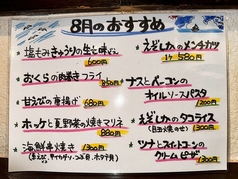 8月のおすすめ
・塩もみきゅうりの生
600円
・おくらの肉巻きフライ
850円
・甘えびの唐揚げ 680円
・ホッケと夏野菜の焼きマリネ
880円
・海鮮串焼き 1300円
・えぞしかのメンチカツ
1ケ 580円
・ナスとベーコンの
オイルソースパスタ
1200円
・えぞしかのタコライス
(目玉焼のせ) 1300円
・ツナとスイートコーンの
クリームピザ 1300円